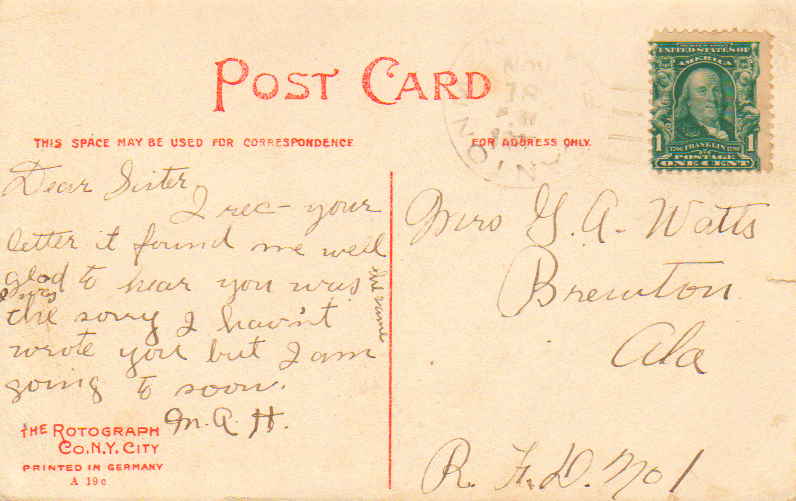 POST CARD
THIS SPACE MAY BE USED FOR CORRESPONDENCE
FOR ADDRESS ONLY.
NOV
18
UNITED STATES OF
AMERICA
1 FRANKLIN 1
POSTAGE
ONE CENT
Dear Sister,
I rec- your
letter it found me well
glad to hear you was
the same
the sorry I hav'nt
wrote you but I am
going to soon.
M. A. H.
Mrs G. A. Watts
Brewton
Ala
R. F. D. No 1
THE ROTOGRAPH
CO, N.Y. CITY
PRINTED IN GERMANY
A 19c